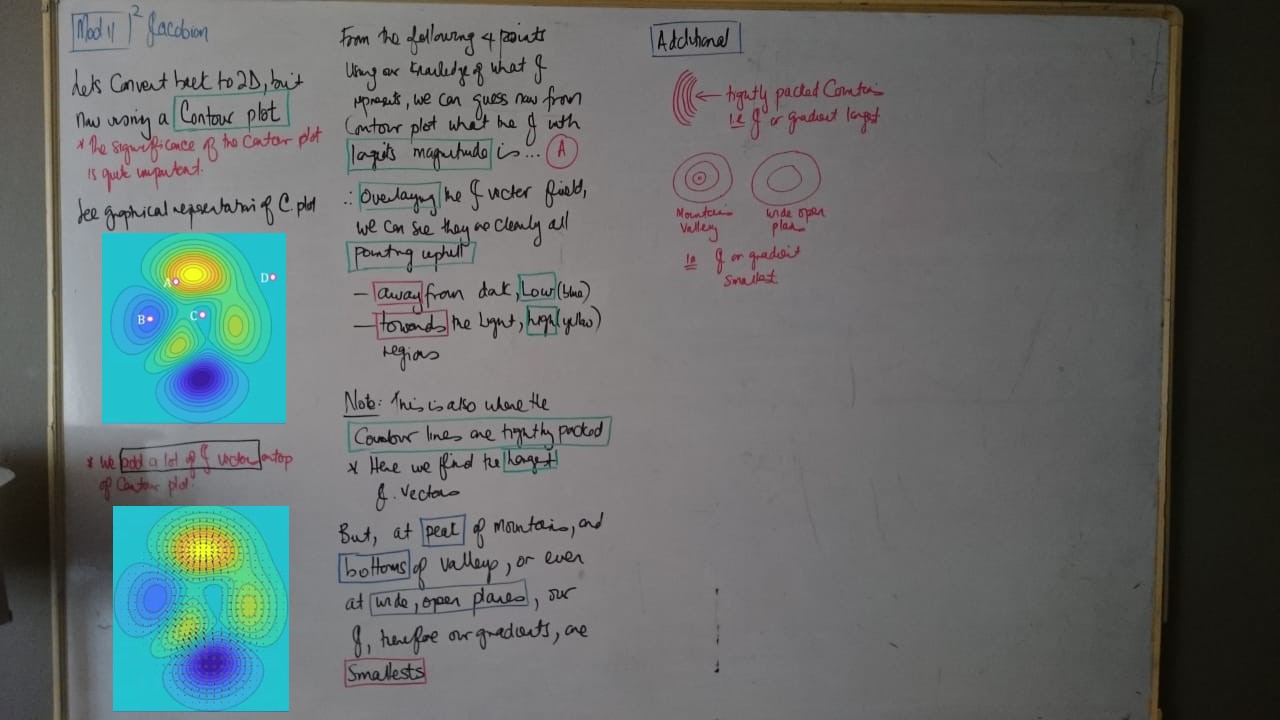 Mod 11 | 2 Jacobian
Lets Convert back to 2D, but
Now using a Contour plot
* The significance of the Contour plot
is quite important.
See graphical representation of C. plot
A
B
C
D
* We add a lot of J vectors on top
of Contour plot.
From the following 4 points
Using our knowledge of what J
represents, we can guess now from
Contour plot what the J with
largest magnitude is... A
∴ Overlaying the J vector field,
we can see they are clearly all
pointing uphill
- away from dark, Low (blue)
- towards the Light, high (yellow)
regions
Note: This is also where the
Contour lines are tightly packed
* Here we find the longest
J. Vectors
But, at peak of mountains, and
bottoms of valleys, or even
at wide, open planes, our
J, therefore our gradients, are
Smallests
Additional
← tightly packed Contours
ie J or gradient largest
Mountain
Valley
wide open
plane
ie J or gradient
Smallest